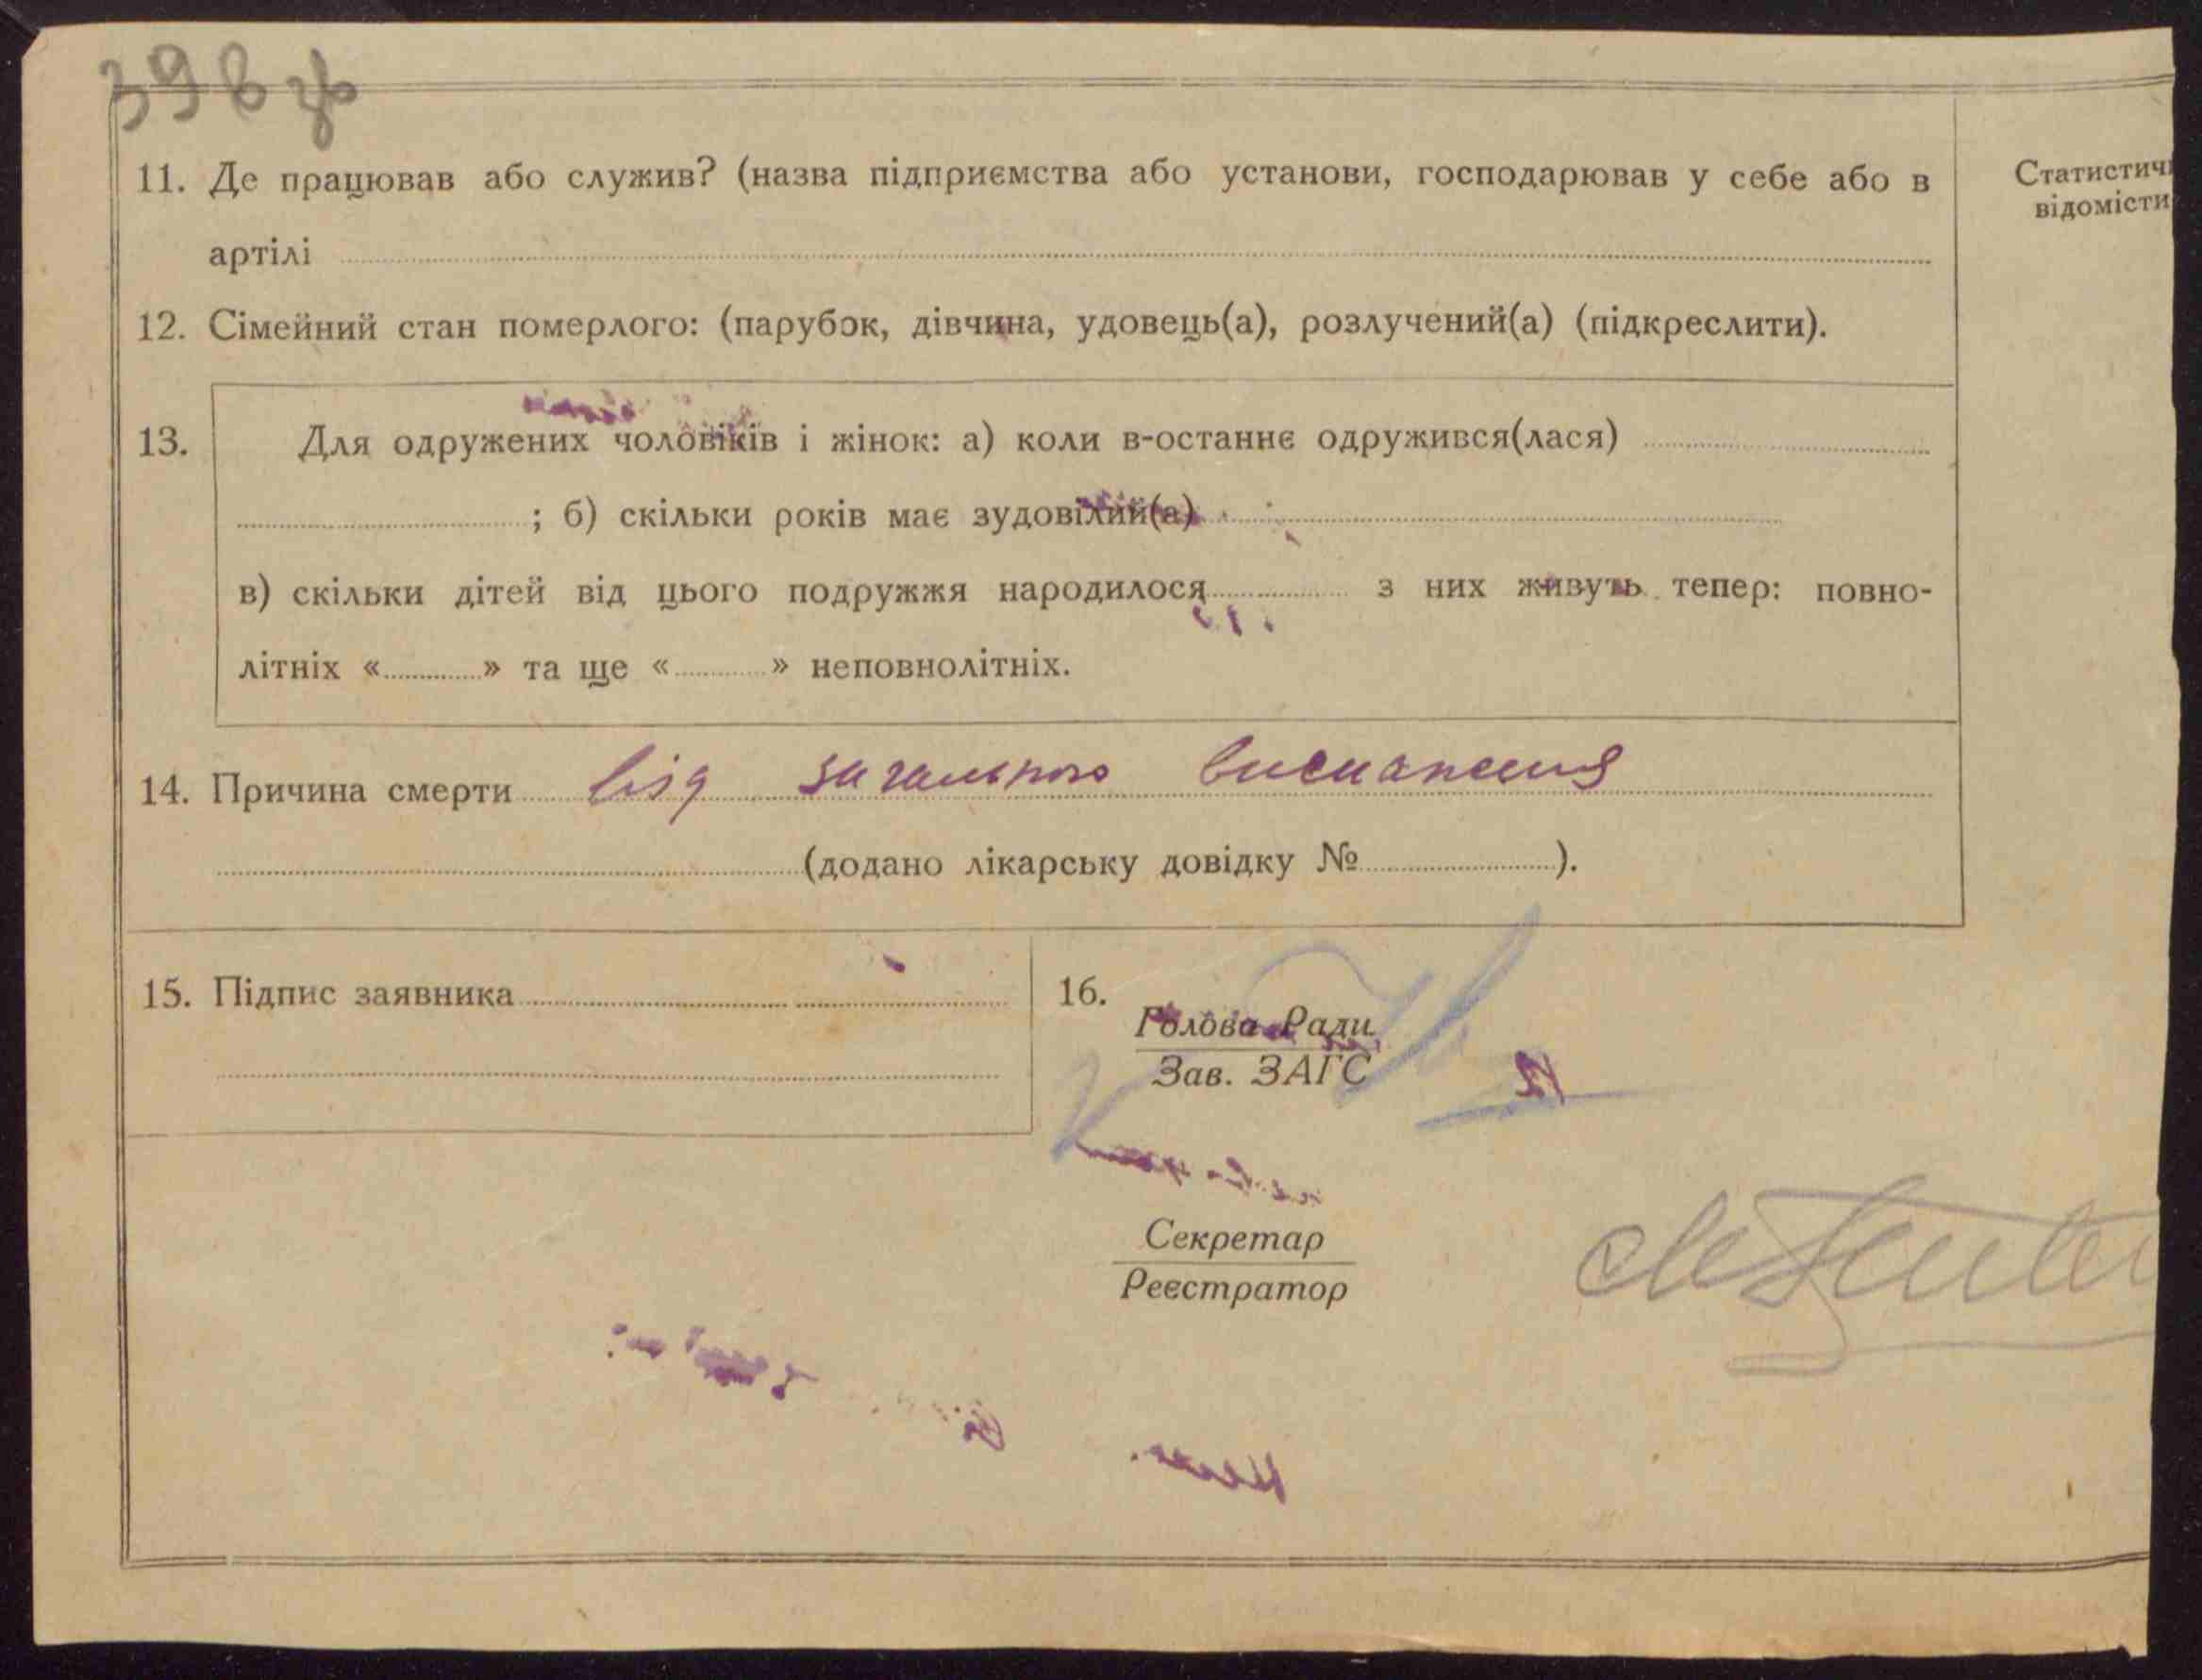 398 зв
11. Де працював або служив? (назва підприємства або установи, господарював у себе або в
артілі
Статистичн
відомісти
12. Сімейний стан померлого: (парубок, дівчина, удовець(а), розлучений(а) (підкреслити).
13. Для одружених чоловіків і жінок: а) коли в-останнє одружився(лася)
; б) скільки років має зудовілий(а)
в) скільки дітей від цього подружжя народилося з них живуть тепер: повно-
літніх « » та ще « » неповнолітніх.
14. Причина смерти від загального виснаження
(додано лікарську довідку № ).
15. Підпис заявника
16.
Голова Ради
Зав. ЗАГС
Секретар
Реєстратор